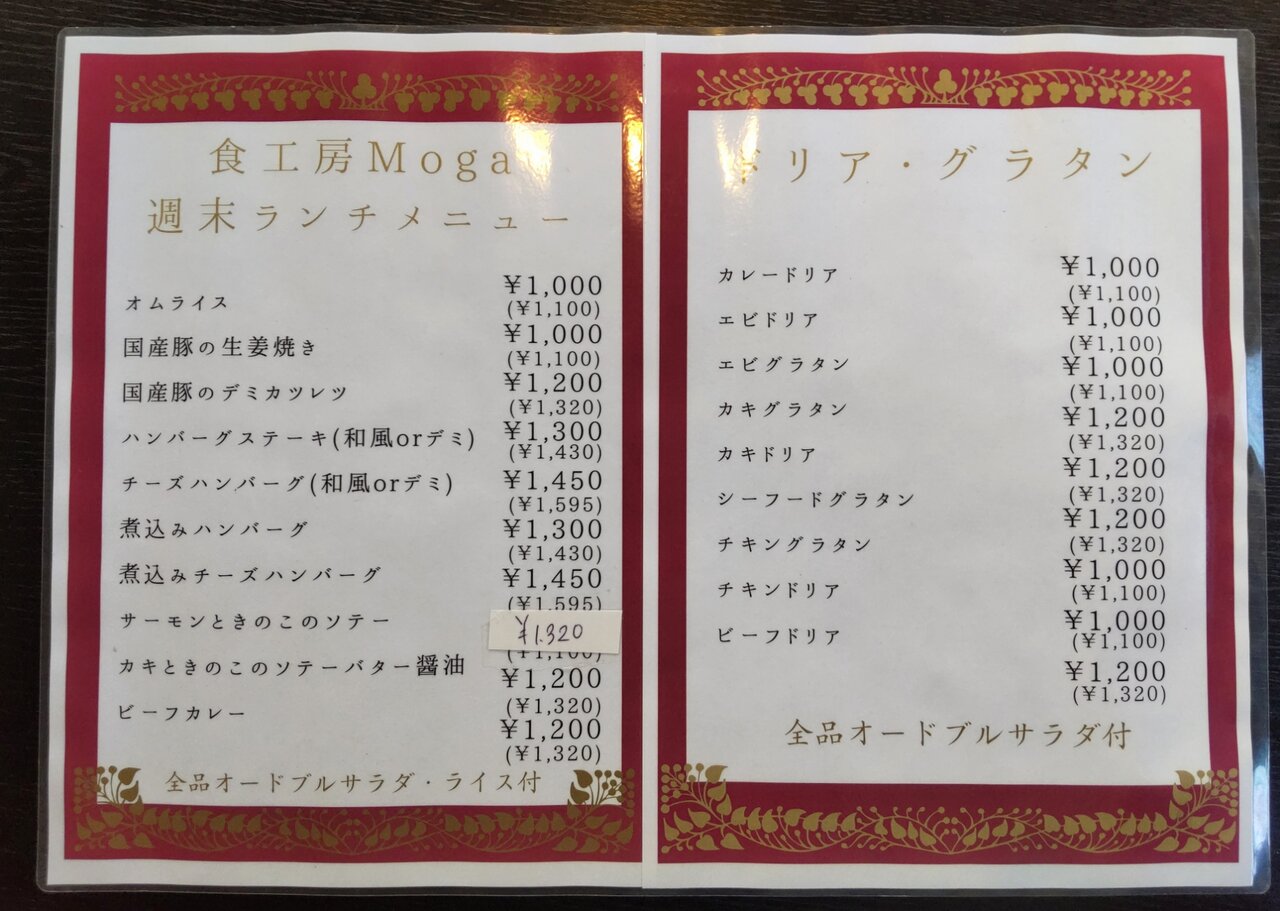 食工房Moga
週末ランチメニュー
オムライス ¥1,000
(¥1,100)
国産豚の生姜焼き ¥1,000
(¥1,100)
国産豚のデミカツレツ ¥1,200
(¥1,320)
ハンバーグステーキ(和風orデミ) ¥1,300
(¥1,430)
チーズハンバーグ(和風orデミ) ¥1,450
(¥1,595)
煮込みハンバーグ ¥1,300
(¥1,430)
煮込みチーズハンバーグ ¥1,450
(¥1,595)
サーモンときのこのソテー ¥1.320
(¥1,100)
カキときのこのソテーバター醤油 ¥1,200
(¥1,320)
ビーフカレー ¥1,200
(¥1,320)
全品オードブルサラダ・ライス付
ドリア・グラタン
カレードリア ¥1,000
(¥1,100)
エビドリア ¥1,000
(¥1,100)
エビグラタン ¥1,000
(¥1,100)
カキグラタン ¥1,200
(¥1,320)
カキドリア ¥1,200
(¥1,320)
シーフードグラタン ¥1,200
(¥1,320)
チキングラタン ¥1,000
(¥1,100)
チキンドリア ¥1,000
(¥1,100)
ビーフドリア ¥1,200
(¥1,320)
全品オードブルサラダ付